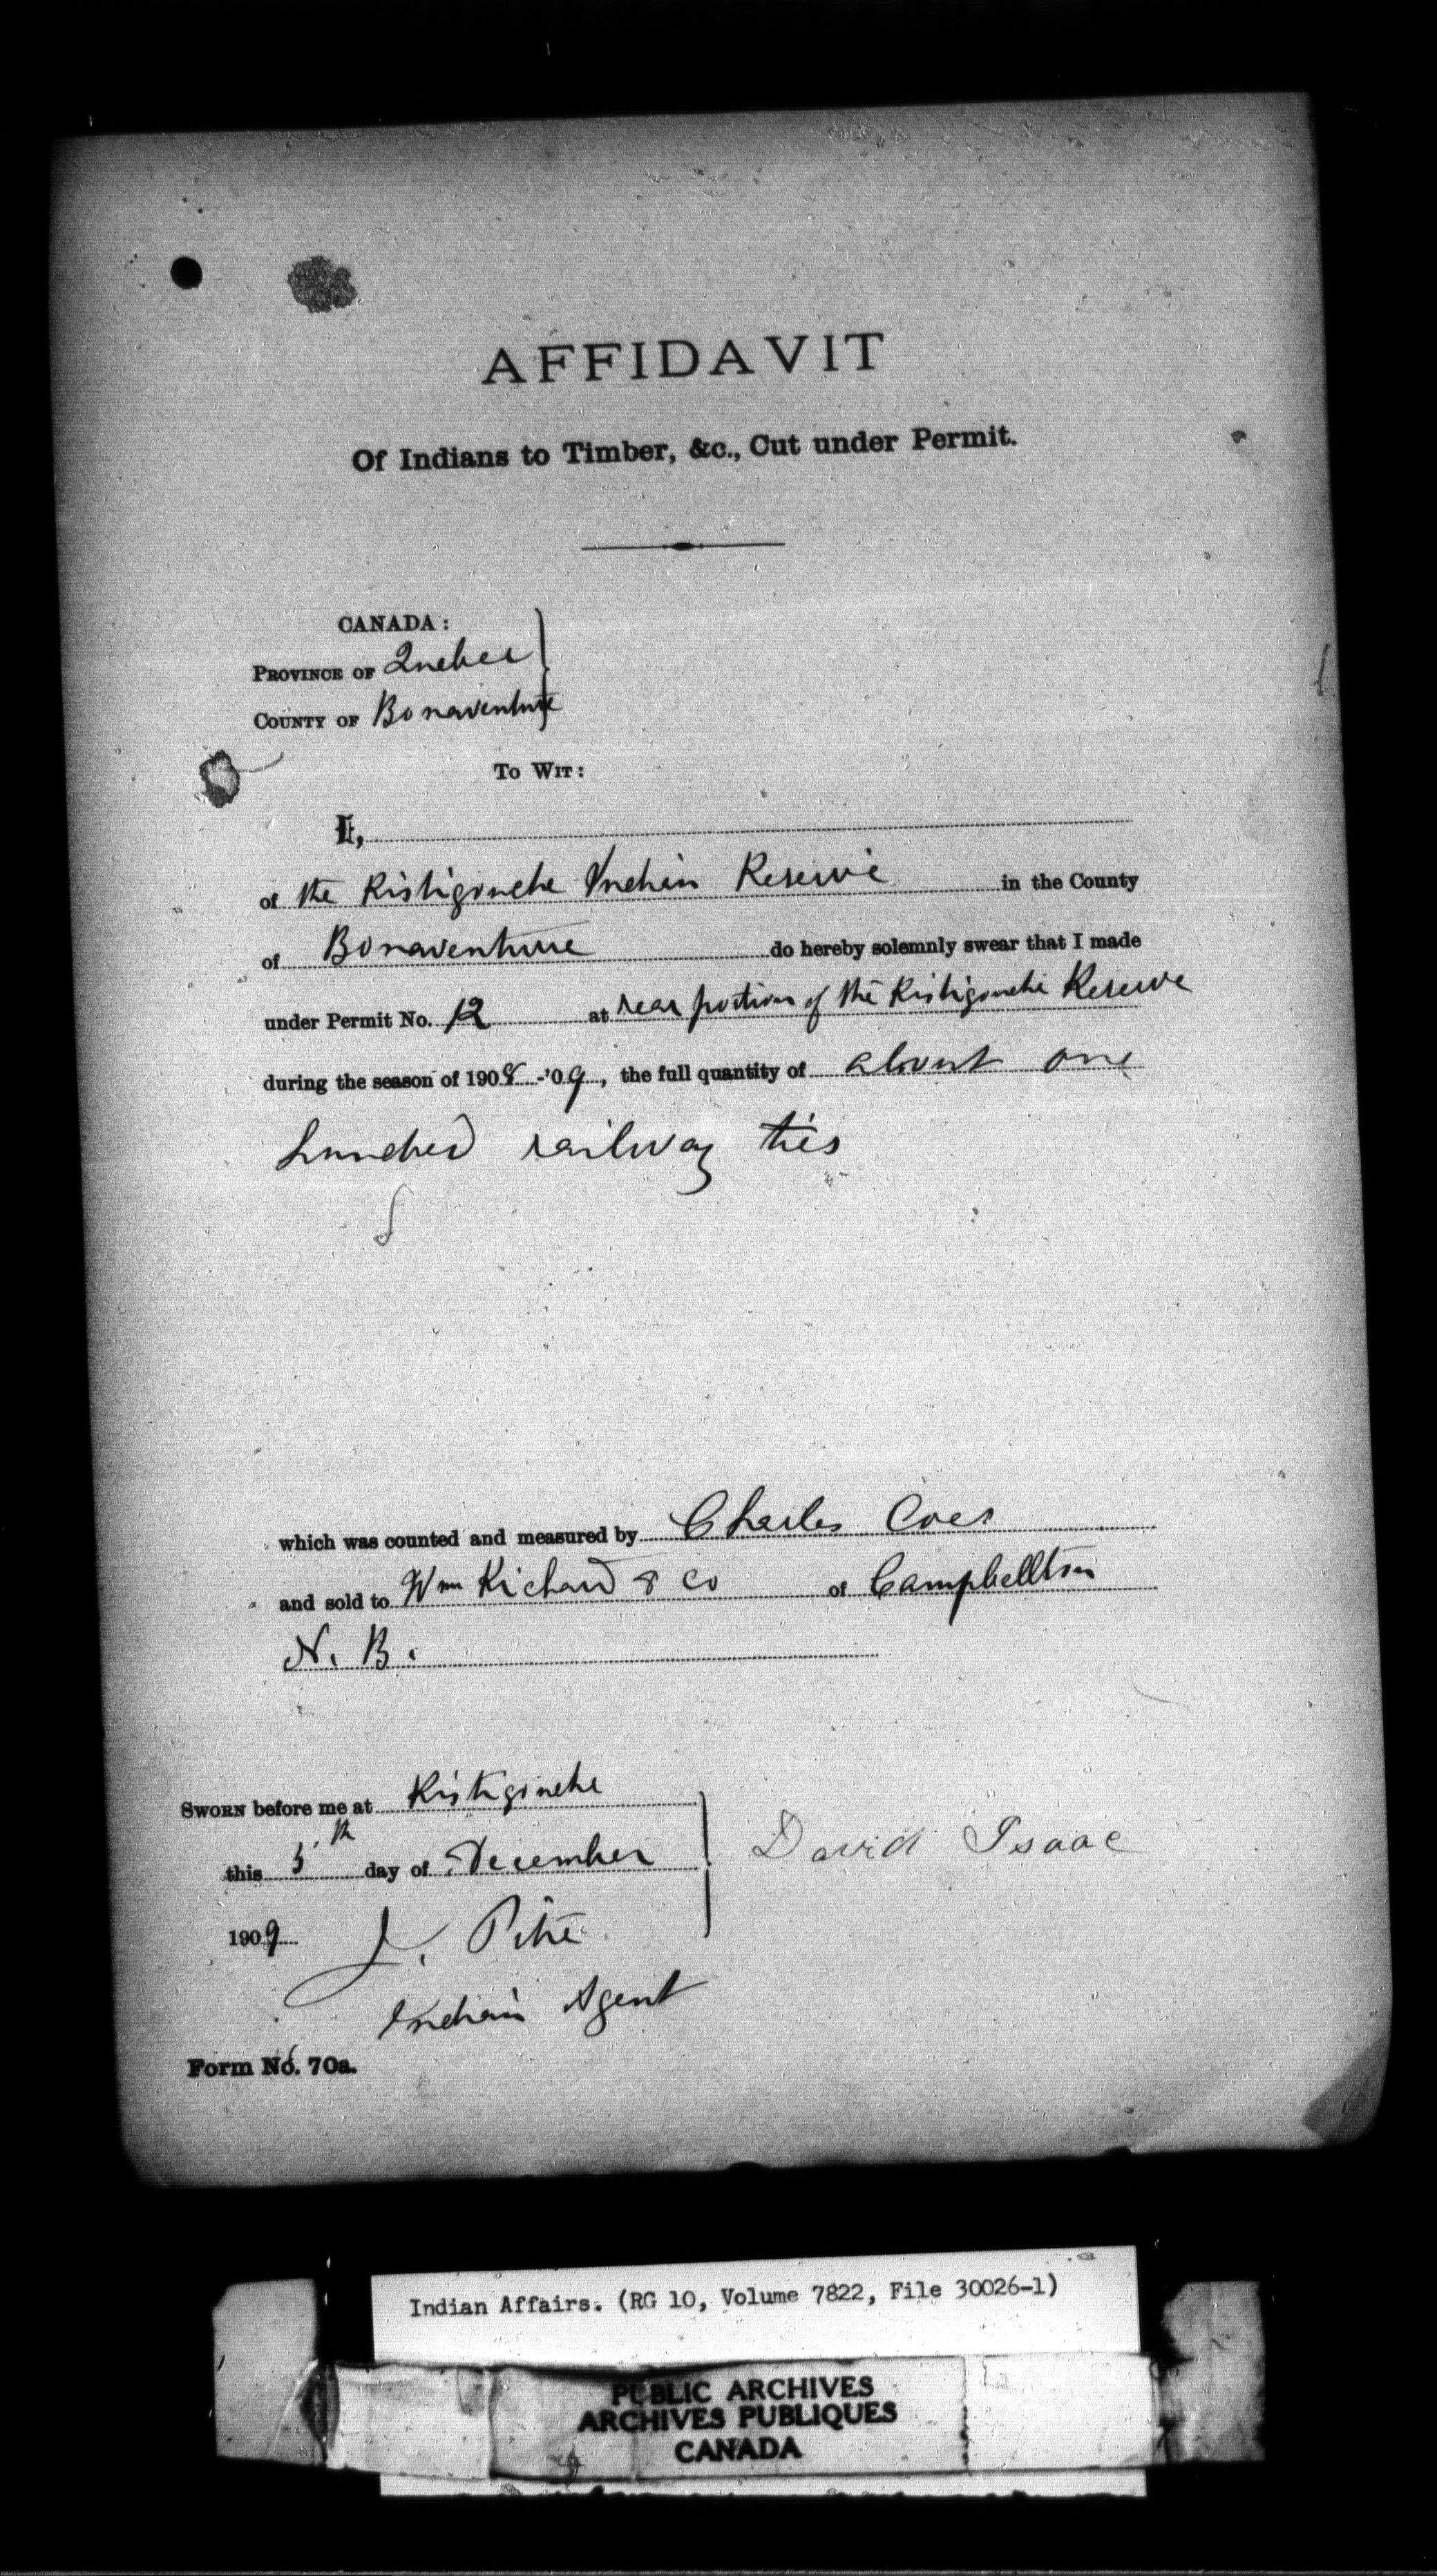 AFFIDAVIT
Of Indians to Timber, &c., Cut under Permit.
CANADA:
PROVINCE OF Quebec
COUNTY OF Bonaventure
TO WIT:
I,
of the Ristigouche Indian Reserve in the County
of Bonaventure do hereby solemnly swear that I made
under Permit No. 12 at rear portion of the Ristigouche Reserve
during the season of 1908-'09, the full quantity of about one
hundred railway ties
which was counted and measured by Charles
and sold to Wm Richard & Co of Campbellton
N. B.
SWORN before me at Ristigouche
this 5th day of December
1909
David Isaac
J. Pitre
Indian Agent
Form No. 70a.
Indian Affairs. (RG 10, Volume 7822, File 30026-1)
PUBLIC ARCHIVES
ARCHIVES PUBLIQUES
CANADA